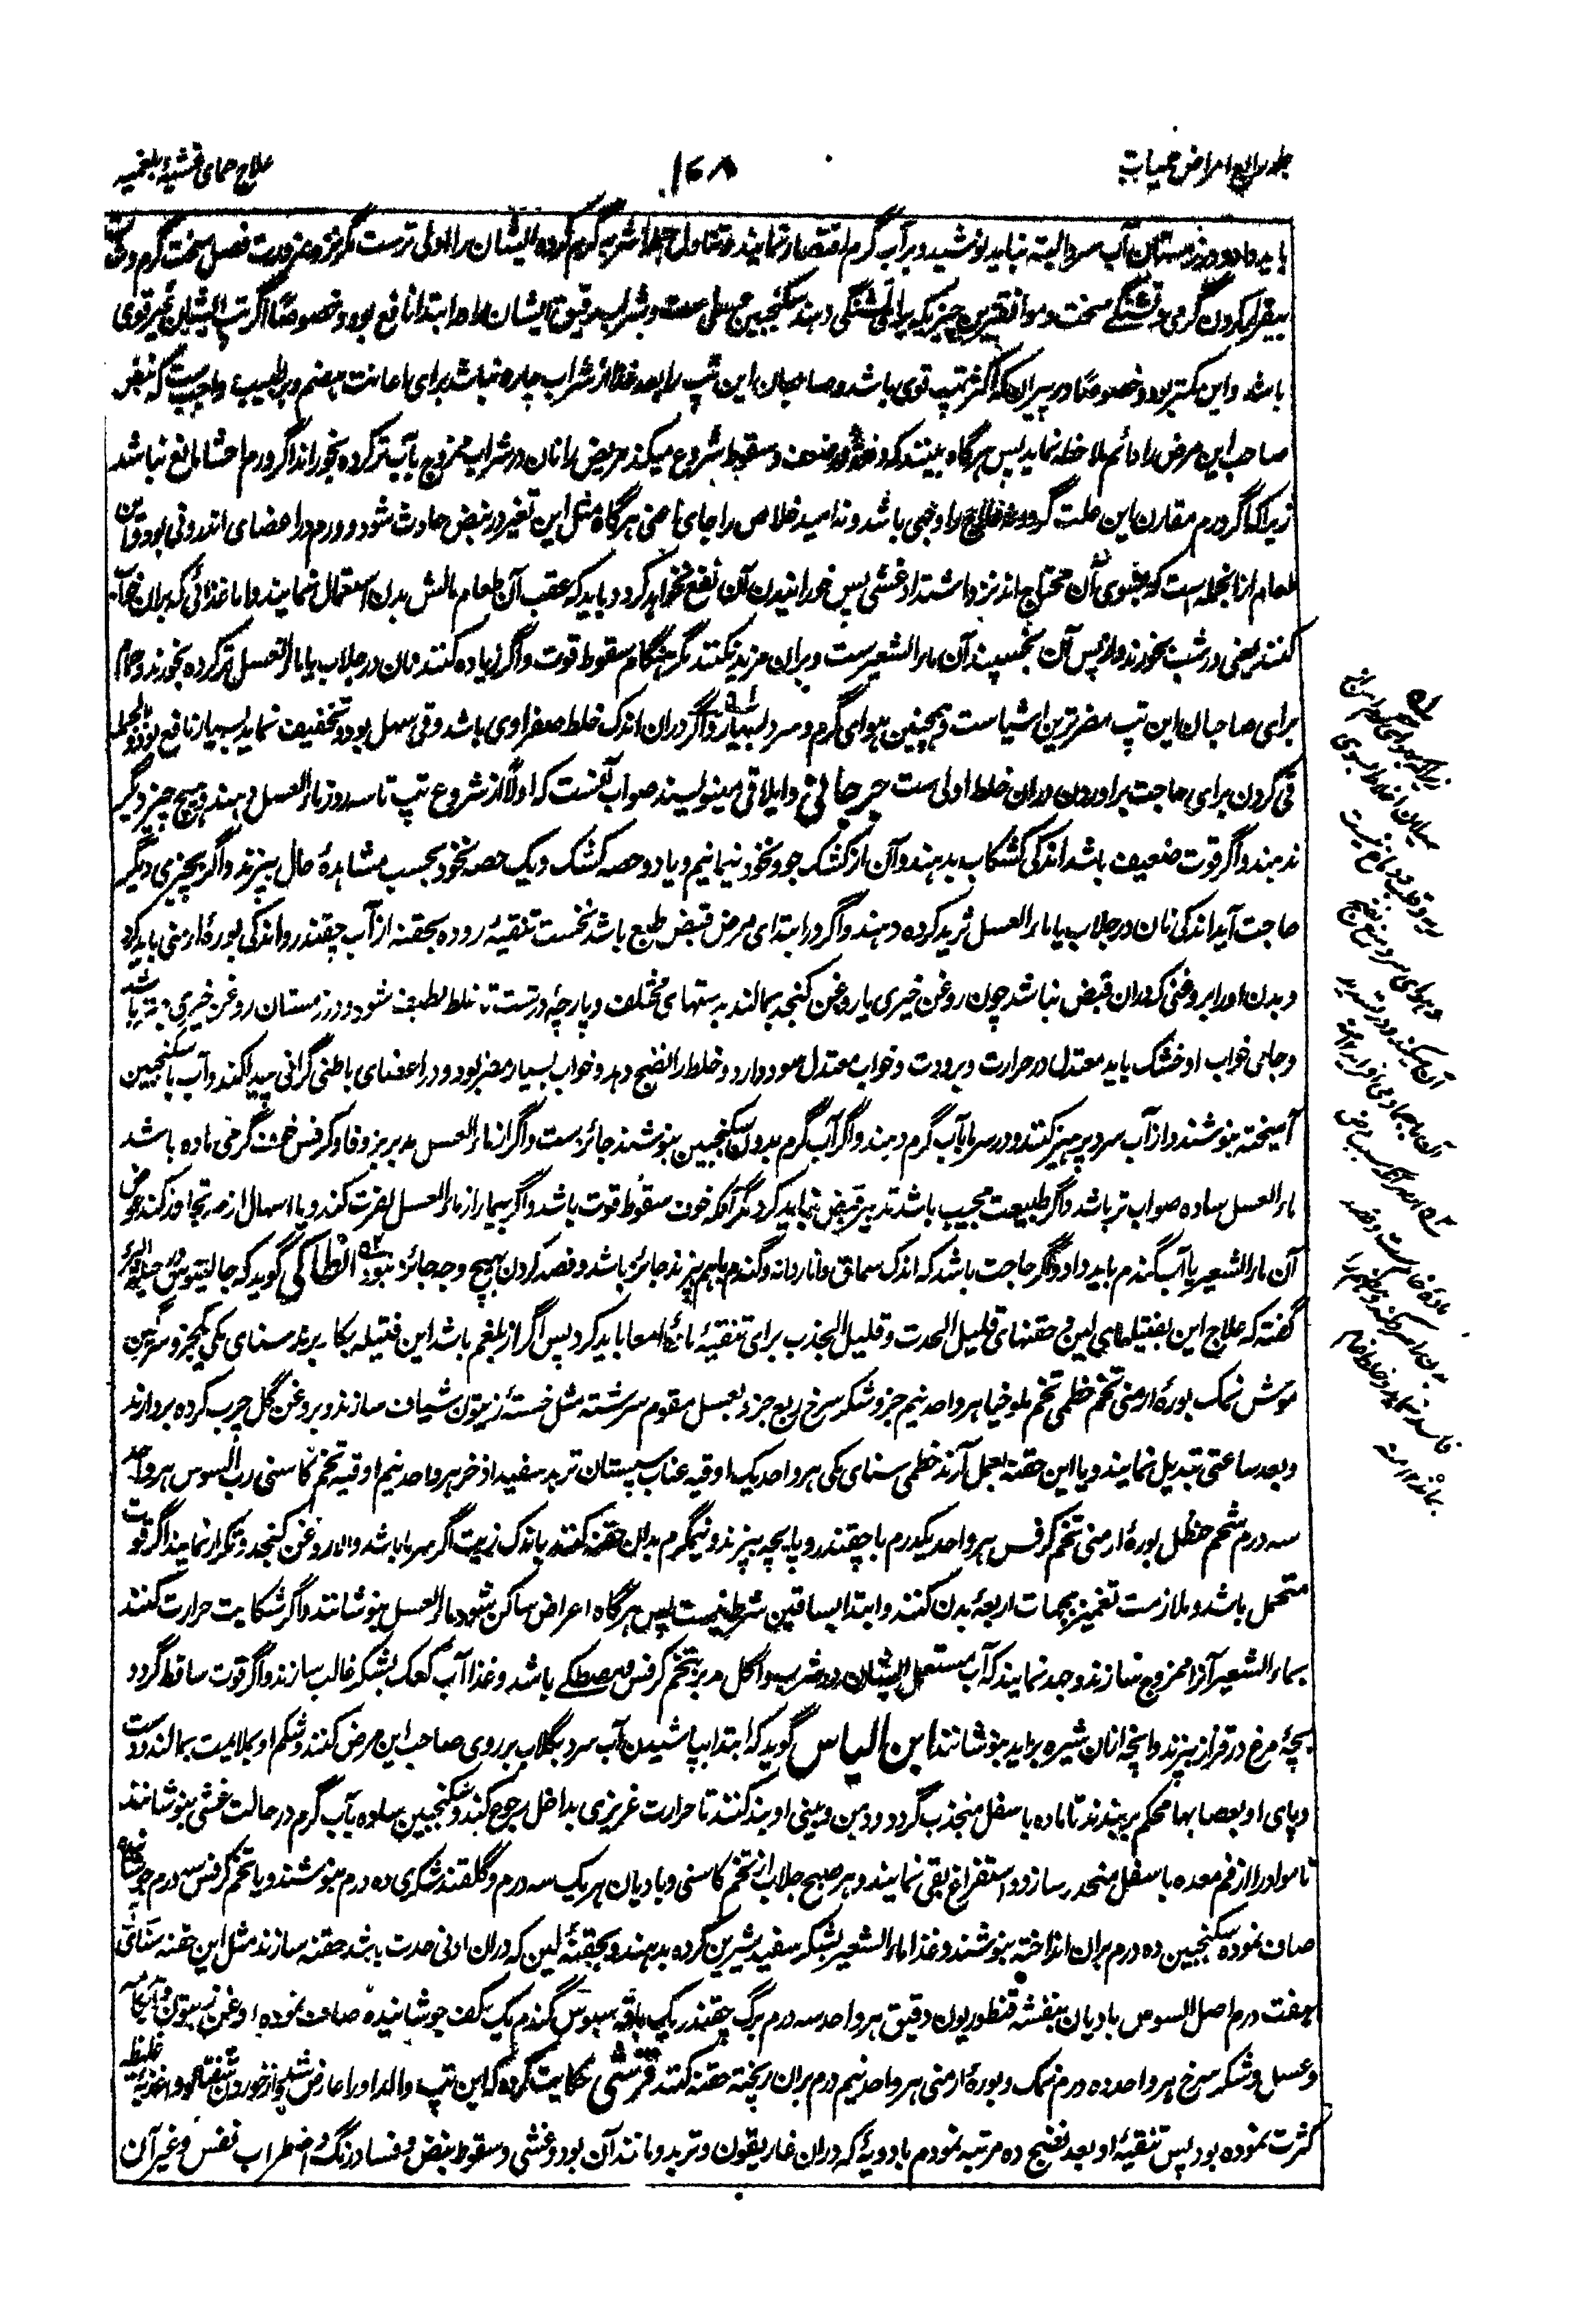 جلد رابع امراض حمیات
۱۶۸
علاج حمای غشیهٔ بلغمیه
باید داد و در زمستان آب سرد البته نباید نوشید و بر آب گرم اقتصار نمایند و تناول جملهٔ اشربه گرم کرده ایشان را اولی ترست مگر نزد ضرورت فصل سخت گرم و
بیقرار کردن گرمی و تشنگی سخت و موافقترین چیزیکه برای تشنگی دهند سکنجبین عسلی ست و شراب رقیق ایشان را در ابتدا نافع بود و خصوصاً اگر تب ایشان غیر قوی
باشد و این کمتر بود و خصوصاً در پیران که اکثر تپ قوی نباشد و صاحبان این تپ را بعد غذا از شراب چاره نباشد برای اعانت هضم و بر طبیب واجب ست که نبض
صاحب این مرض را دائم ملاحظه نماید پس هرگاه ببیند که دفعةً در ضعف و سقوط شروع میکند مریض را نان در شراب ممزوج بآب تر کرده بخوراند اگر ورم احشا مانع نباشد
زیرا که اگر ورم مقارن این علت گردد علاج را وجهی نباشد و نه امید خلاص را جای ناضی هرگاه مثل این تغیر در نبض حادث شود و ورم در اعضای اندرونی بود و این
طعام از آنجمله است که بسوی آن محتاج اند نزد اشتداد غشی پس خورانیدن آن نفع نخواهد کرد و باید که عقب آن طعام مالش بدن استعمال نمایند و اما غذائی که بران
کنند یعنی در شب بخورند و از پس آن بخسپند آن ماء الشعیر ست و بران مزید نکنند مگر هنگام سقوط قوت و اگر زیاده کنند نان در جلاب یا ماء العسل تر کرده بخورند و حمام
برای صاحبان این تپ مضر ترین اشیا ست و همچنین هوای گرم و سرد بسیار و اگر دران اندک خلط صفراوی باشد و قی سهل بود و تخفیف نماید بسیار نافع بود و بالجمله
قی کردن برای حاجت بر آوردن دران خلط اولی ست جرجانی و ایلاقی مینویسند صواب آنست که اولاً از شروع تپ تا سه روز ماء العسل دهند و هیچ چیز دیگر
ندهند و اگر قوت ضعیف باشد اندکی کشکاب بدهند و آن از کشک جو و نخود نیمانیم و یا دو حصه کشک و یک حصه نخود بحسب مشاهدهٔ حال بپزند و اگر بچیزی دیگر
حاجت آید اندکی نان در جلاب یا ماء العسل ثرید کرده دهند و اگر در ابتدای مرض قبض طبع باشد نخست تنقیهٔ روده بحقنه از آب چقندر و اندکی بورهٔ ارمنی باید کرد
و بدن او را بروغنی که دران قبض نباشد چون روغن خیری یا روغن کنجد بمالند بدستهای مختلف و پارچهٔ درشت تا خلط لطیف شود و در زمستان روغن خیری بهتر باشد
و جامی خواب او خشک باید معتدل در حرارت و برودت و خواب معتدل سود دارد و خلط را نضج دهد و خواب بسیار مضر بود و در اعضای باطنی گرانی پیدا کند و آب با سکنجبین
آمیخته بنوشند و از آب سرد پرهیز کنند و در سرما آب گرم دهند و اگر آب گرم بدون سکنجبین بنوشند جائز ست و اگر از ماء العسل مدبر بزوفا و کرفس خوف گرمی ماده باشد
ماء العسل ساده صواب تر باشد و اگر طبیعت مجیب باشد تدبیر قبض نباید کرد مگر آنکه خوف سقوط قوت باشد و اگر بیمار از ماء العسل نفرت کند و یا اسهال از حد تجاوز کند عوض
آن ماء الشعیر یا آب گندم باید داد و اگر حاجت باشد که اندک سماق و اناردانه و گندم باهم بپزند جائز باشد و فصد کردن بهیچ وجه جائز نبود انطاکی گوید که جالینوس در حیلة البرء
گفته که علاج این بفتیلهای لین و حقنهای قلیل الحدت و قلیل الجذب برای تنقیهٔ ما فی الامعا باید کرد پس اگر از بلغم باشد این فتیله بکار برند سنای مکی یکجزو سرگین
موش نمک بورهٔ ارمنی تخم خطمی تخم ملوخیا هر واحد نیم جزو شکر سرخ ربع جزء بعسل مقوم سرشته مثل خستهٔ زیتون شیاف سازند و بروغن گل چرب کرده بردارند
و بعد ساعتی تبدیل نمایند و یا این حقنه بعمل آرند خطمی سنای مکی هر واحد یک اوقیه عناب سپستان تربد سفید اذخر هر واحد نیم اوقیه تخم کاسنی رب السوس هر واحد
سه درم شحم حنظل بورهٔ ارمنی تخم کرفس هر واحد یکدرم با چقندر و پایچه بپزند و نیمگرم بدان حقنه کنند باندک زیت اگر سرما باشد والا روغن کنجد و تکرار نمایند اگر قوت
متحمل باشد و ملازمت تغمیز بجهات اربعهٔ بدن کنند و ابتدا بساقین شرط نیست پس هرگاه اعراض ساکن شود ماء العسل بنوشانند و اگر شکایت حرارت کنند
بماء الشعیر آنرا ممزوج سازند و جهد نمایند که آب مستعمل ایشان در شرب و اکل مدبر بتخم کرفس و مصطکے باشد و غذا آب کعک بشکر غالب سازند و اگر قوت ساقط گردد
بچهٔ مرغ در قراز بپزند و آنچه ازان شیره بر آید بنوشانند ابن الیاس گوید که ابتدا بپاشیدن آب سرد بگلاب بر روی صاحب این مرض کنند و شکم او بملایمت بمالند و دست
و پای او بعصابها محکم بربندند تا ماده باسفل منجذب گردد و دهن و بینی او بند کنند تا حرارت غریزی بداخل رجوع کند و سکنجبین ساده بآب گرم در حالت غشی بنوشانند
تا مواد را از فم معده باسفل منحدر سازد و استفراغ بقی نمایند و هر صبح جلاب از تخم کاسنی و بادیان هر یک سه درم و گلقند شکری ده درم بنوشند و یا تخم کرفس سه درم جوشانیده
صاف نموده سکنجبین ده درم بران انداخته بنوشند و غذا ماء الشعیر بشکر سفید شیرین کرده بدهند و بحقنهٔ لین که دران ادنی حدت باشد حقنه سازند مثل این حقنه سنای
هفت درم اصل السوس بادیان بنفشه قنطوریون دقیق هر واحد سه درم برگ چقندر یک باقه سبوس گندم یک کف جوشانیده صاف نموده روغن زیتون
و عسل و شکر سرخ هر واحد ده درم نمک و بورهٔ ارمنی هر واحد نیم درم بران ریخته حقنه کنند قرشی حکایت کرده که این تپ والد او را عارض شد از خوردن شفتالو و اغذیهٔ غلیظه
کثرت نموده بود پس تنقیهٔ او بعد نضج ده مرتبه نمودم بادویهٔ که دران غاریقون و تربد و مانند آن بود و غشی و سقوط نبض و فساد رنگ و اضطراب نفس و غیر آن